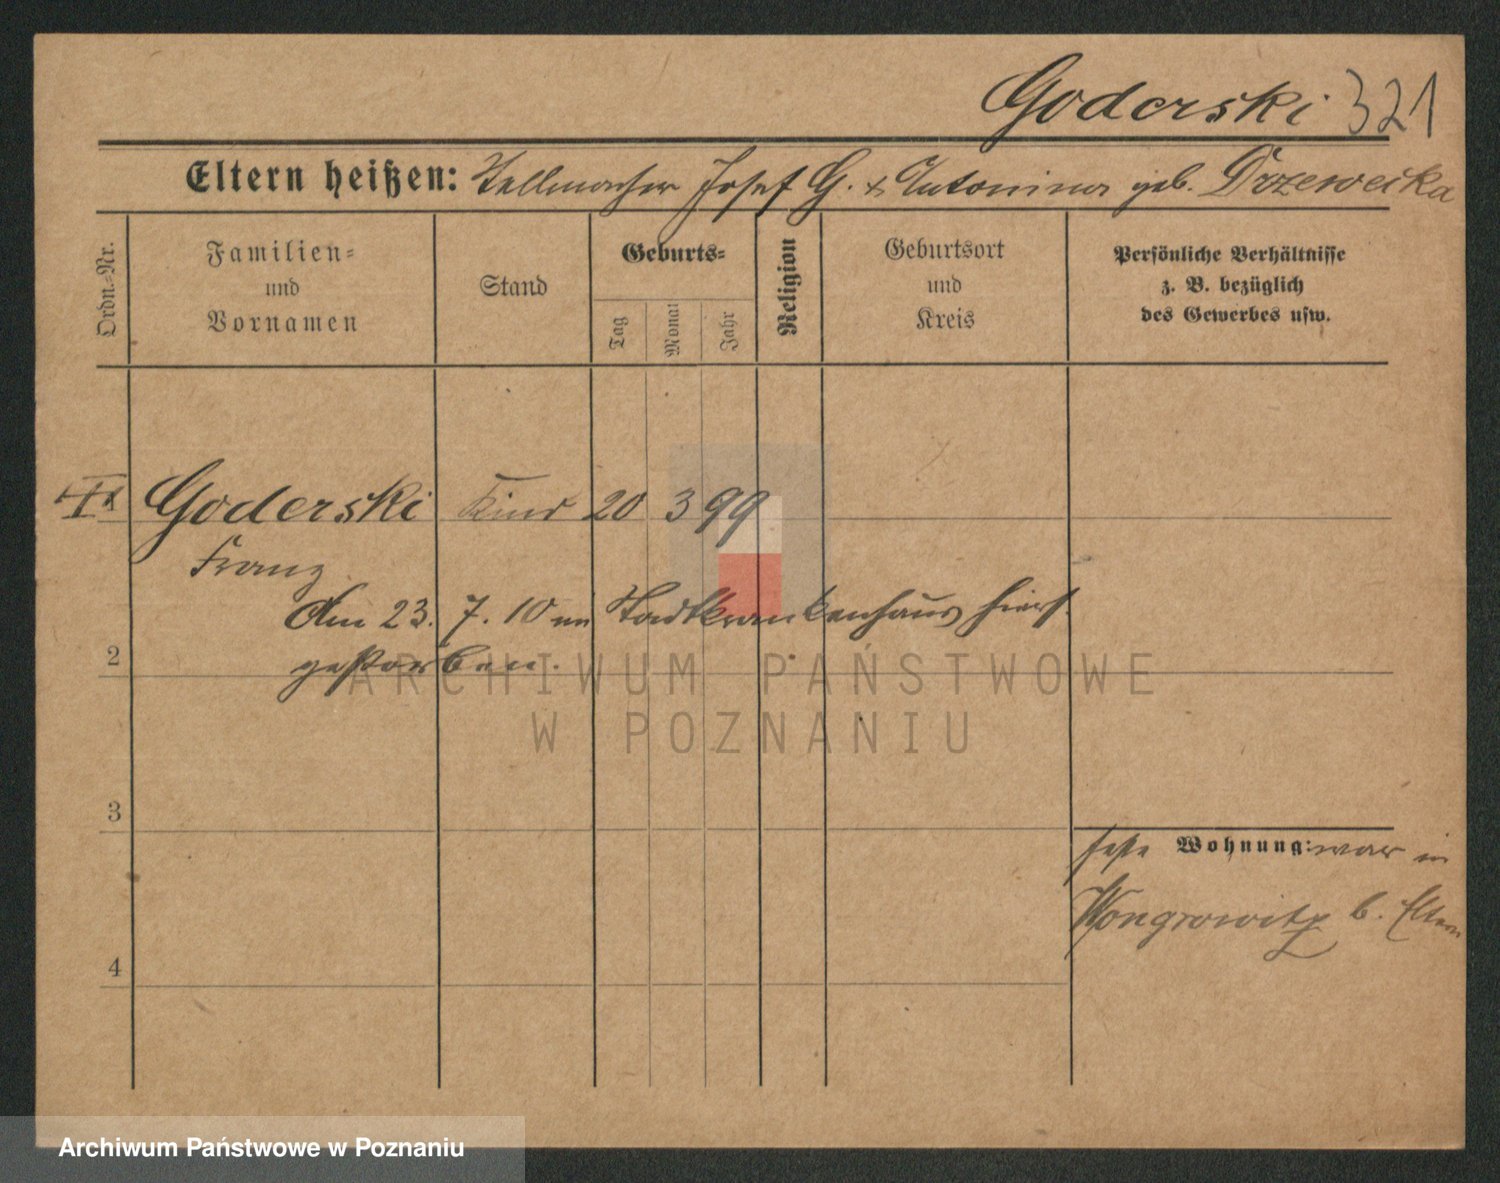 Goderski 321
Eltern heißen: Stellmacher Josef G. & Antonina geb. Drzewecka
Ordn.-Nr.
Familien- und Vornamen
Stand
Geburts-
Tag
Monat
Jahr
Religion
Geburtsort und Kreis
Persönliche Verhältnisse
z. B. bezüglich
des Gewerbes usw.
Goderski Kind 20 3 99
Franz
Am 23. 7. 10 im Stadtkrankenhaus hier
gestorben.
2
3
feste Wohnung: war in
Wongrowitz b. Eltern
4
ARCHIWUM PAŃSTWOWE
W POZNANIU
Archiwum Państwowe w Poznaniu